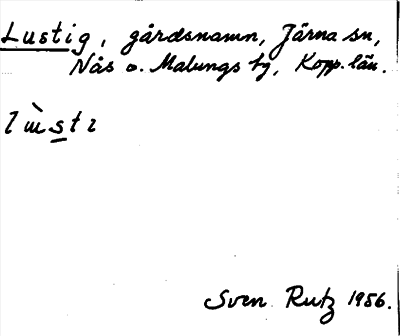 Lustig, gårdsnamn, Järna sn,
Nås o. Malungs tg, Kopp. län.
Sven Rutz 1956.